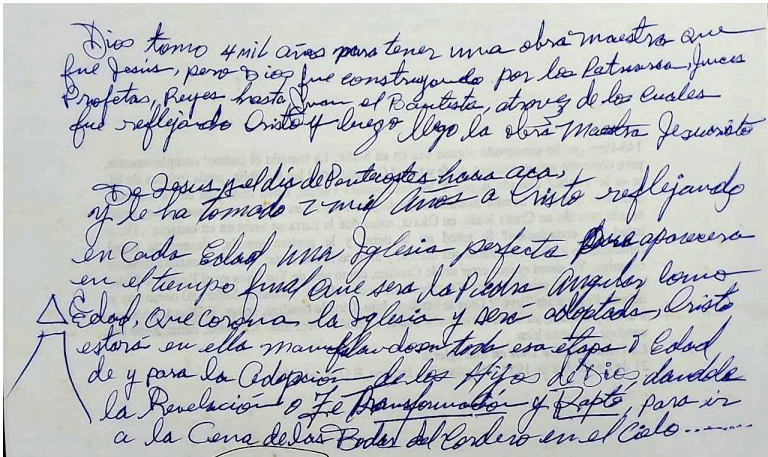 Dios tomo 4 mil años para tener una obra maestra que
fue Jesús, pero Dios fue construyendo por los Patriarca, Jueces
Profetas, Reyes hasta Juan el Bautista, atravez de los cuales
fue reflejando Cristo y luego llego la obra Maestra Jesucristo
De Jesus y el día de Pentecostes hacia aca,
y le ha tomado 2 mil Años a Cristo reflejando
en Cada Edad una Iglesia perfecta para aparecera
en el tiempo final que sera la Piedra Angular como
Edad, que corona la Iglesia y será adoptada, Cristo
estará en ella en toda esa etapa o Edad
de y para la Adopción de los Hijos de Dios, dandole
la Revelación o Fé Transformación y Rapto, para ir
a la Cena de las Bodas del Cordero en el Cielo........